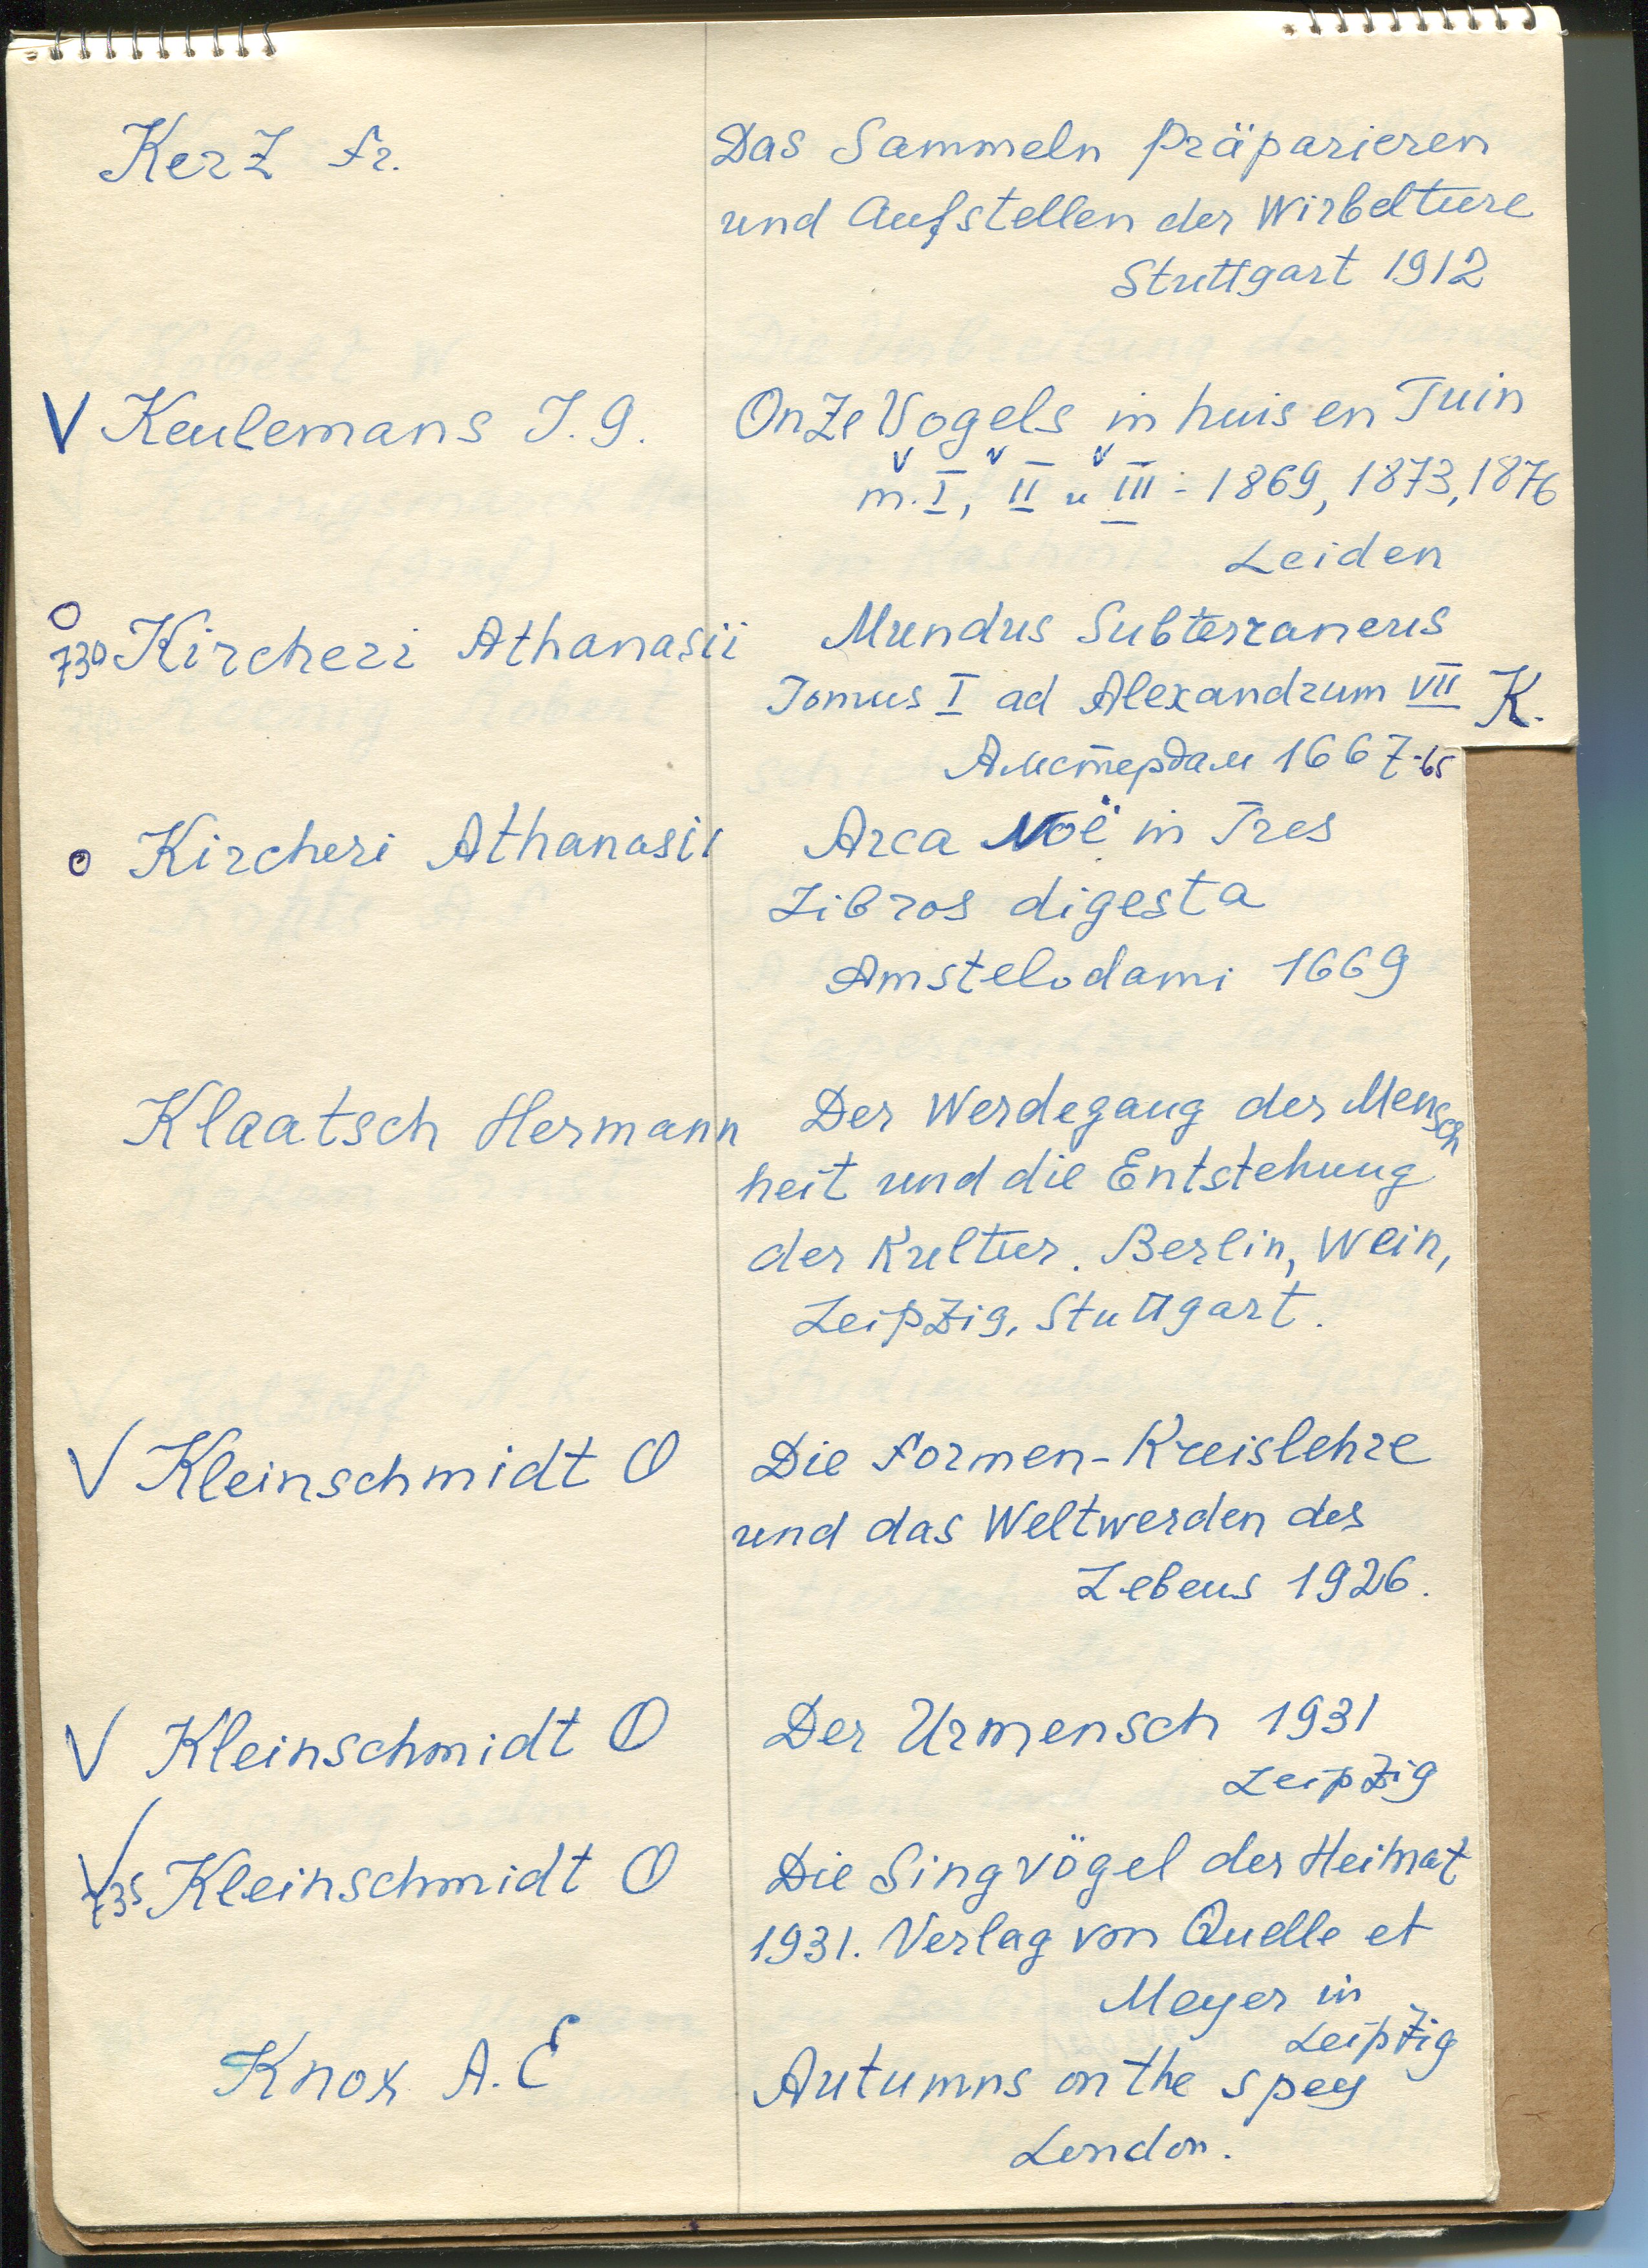 Kerz Fr. Das Sammeln Präparieren
und Aufstellen der Wirbeltiere
Stuttgart 1912
V Keulemans J. G. Onze Vogels in huis en Tuin
v v v
т. I, II и III - 1869, 1873, 1876
Leiden
O
730 Kircheri Athanasii Mundus Subterraneus
Tomus I ad Alexandrum VII K.
Амстердам 1667-65
O Kircheri Athanasii Arca Noë in Tres
Libros digesta
Amstelodami 1669
Klaatsch Hermann Der Werdegang der Mensch
heit und die Entstehung
der Kultur. Berlin, Wein,
Leipzig, Stuttgart.
V Kleinschmidt O Die Formen-Kreislehre
und das Weltwerden des
Lebens 1926.
V Kleinschmidt O Der Urmensch 1931
Leipzig
V 735 Kleinschmidt O Die Singvögel der Heimat
1931. Verlag von Quelle et
Meyer in
Leipzig
Knox A. E Autumns on the spey
London.